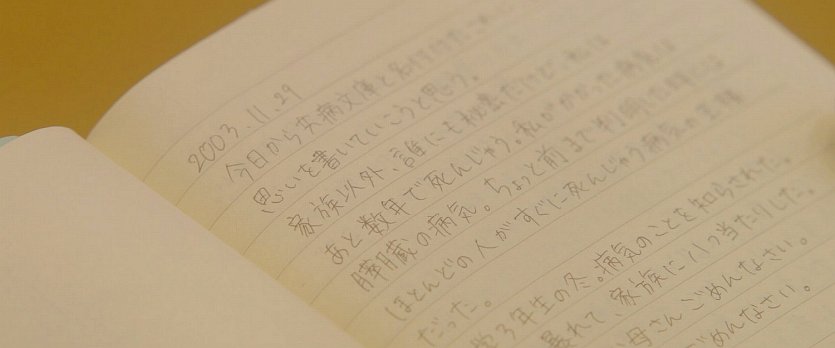 2003.11.29
今日から共病文庫と名付けたこの
思いを書いていこうと思う。
家族以外、誰にも秘密だけど、私は
あと数年で死んじゃう。私がかかった病気は
膵臓の病気。ちょっと前まで判明した時には
ほとんどの人がすぐに死んじゃう病気の王様
だった。
学3年生の冬。病気のことを知らされた。
暴れて、家族に八つ当たりした。
母さんごめんなさい。
ごめんなさい。